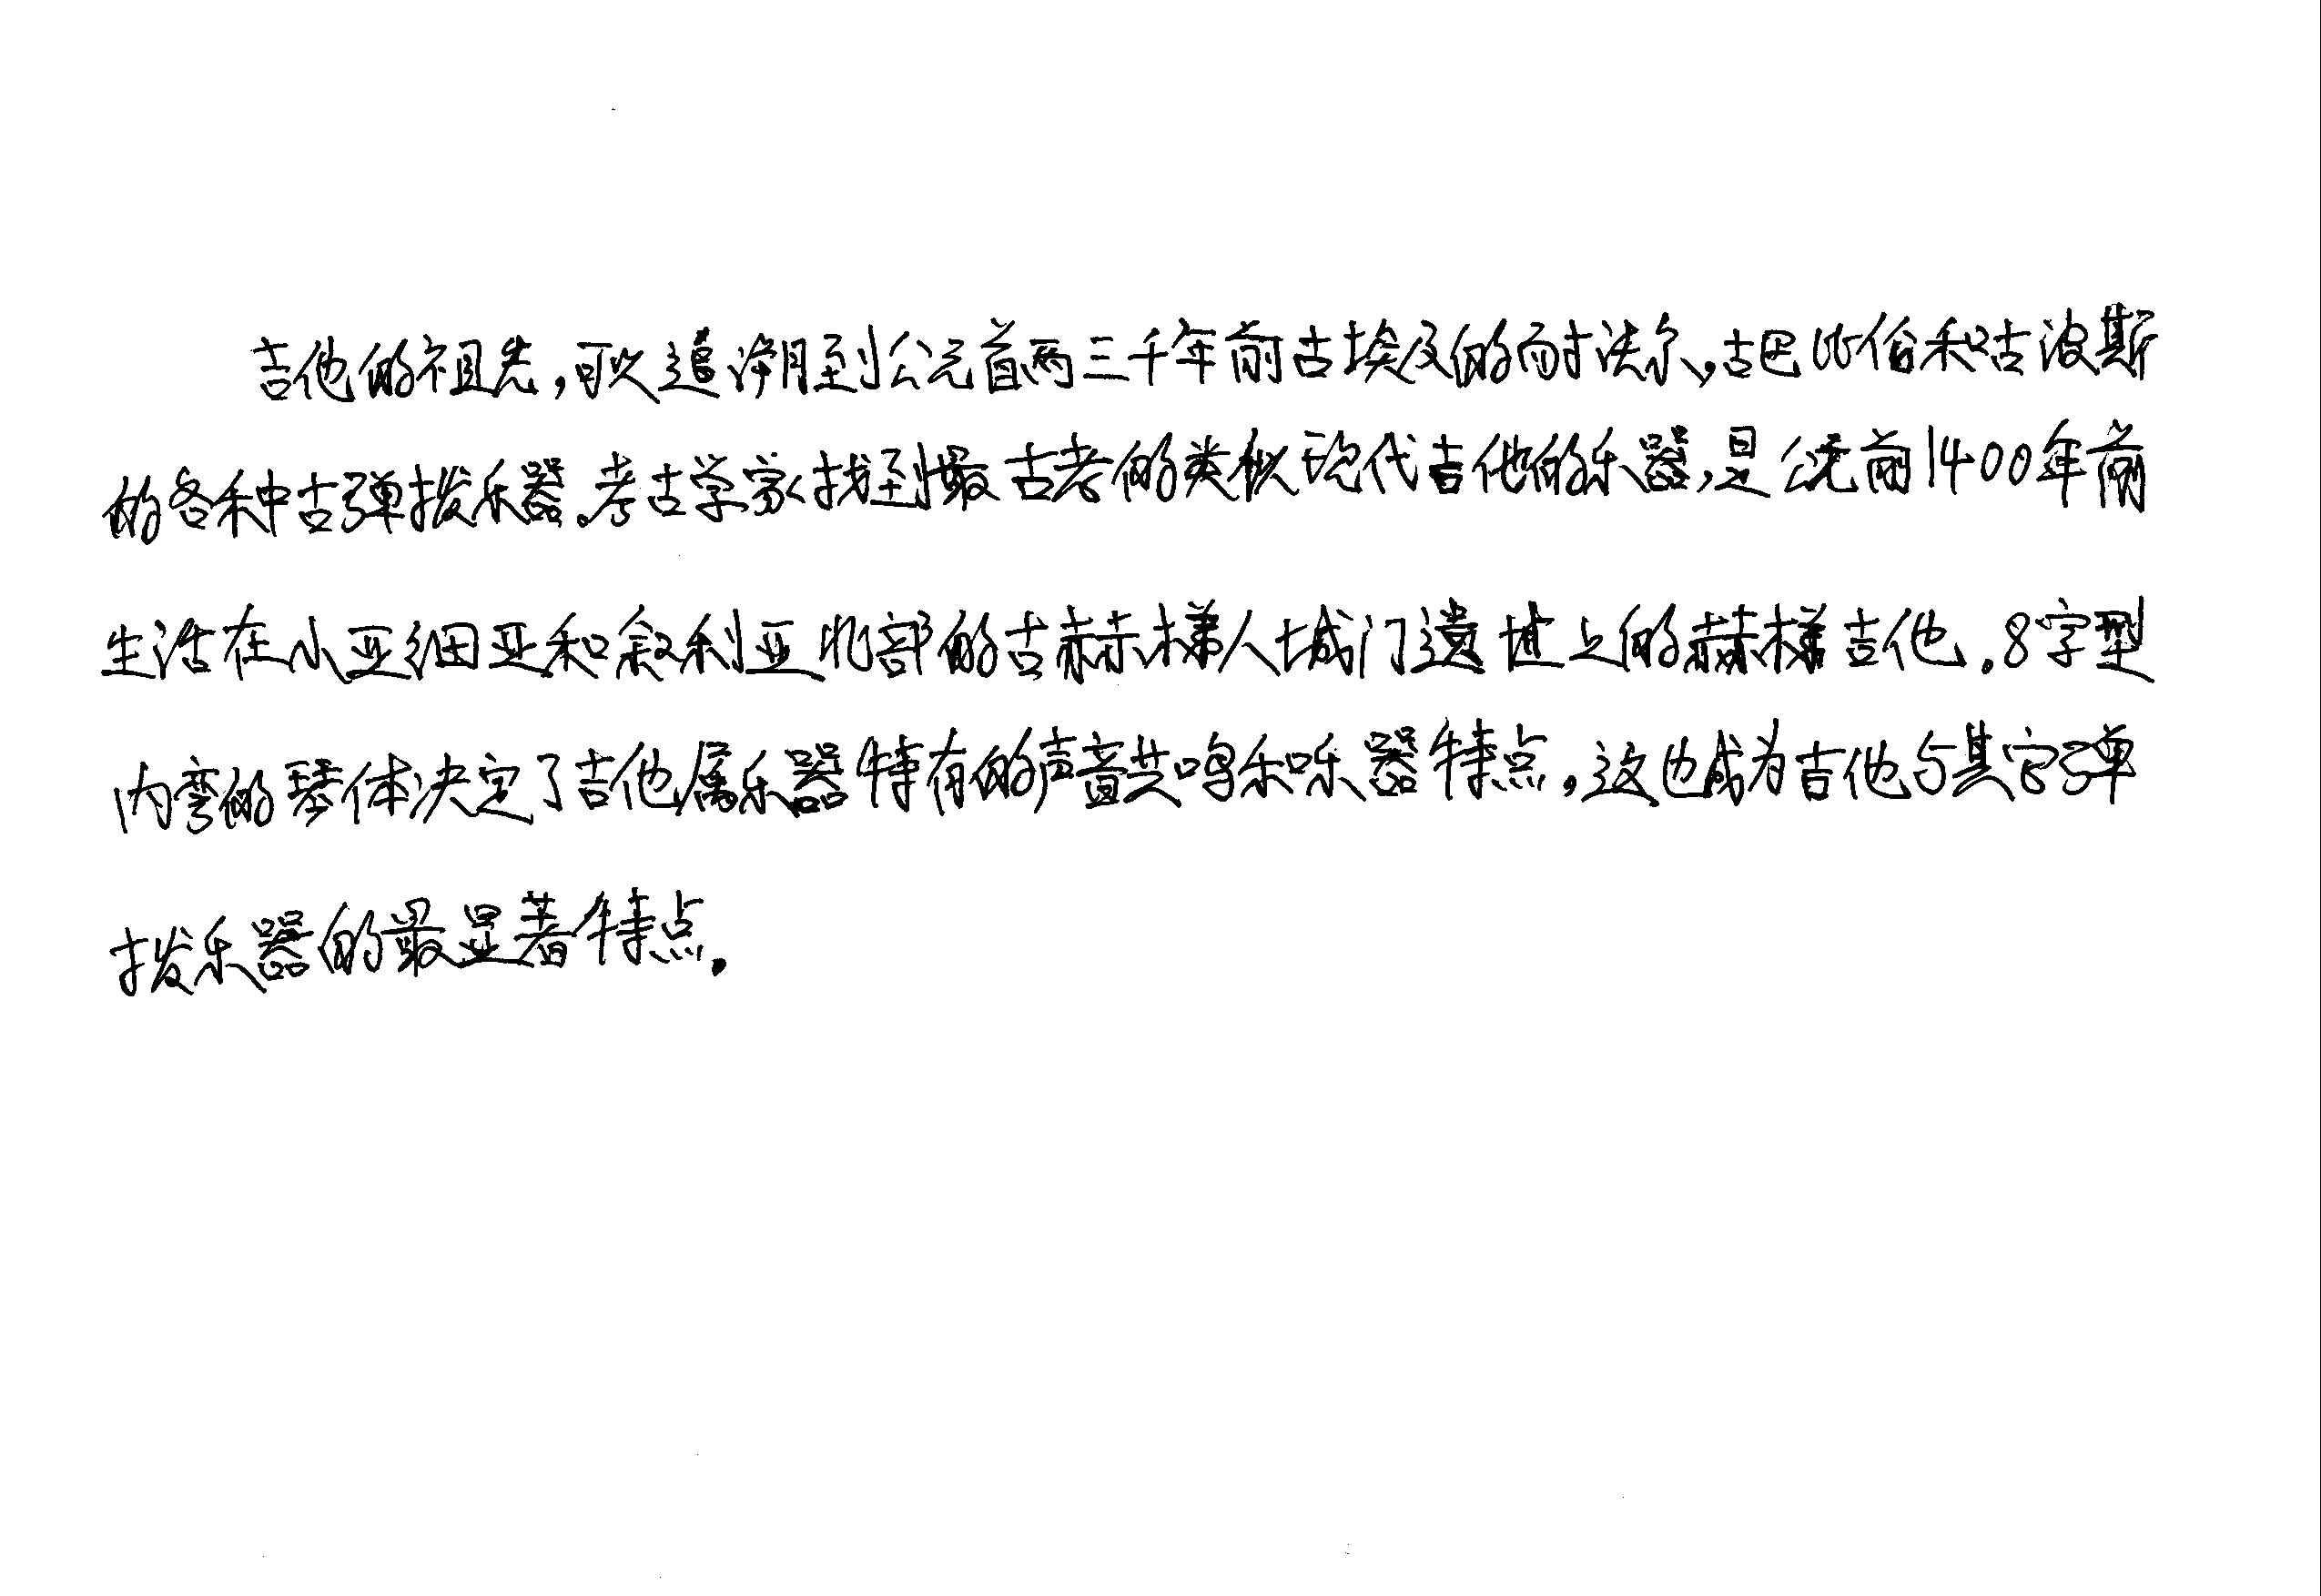 吉他的祖先，可以追溯到公元前两三千年前古埃及的耐法尔，古巴比伦和古波斯
的各种古弹拨乐器。考古学家找到最古老的类似现代吉他的乐器，是公元前1400年前
生活在小亚细亚和叙利亚北部的古赫梯人城门遗址上的赫梯吉他。8字型
内弯的琴体决定了吉他属乐器特有的声音共鸣乐器特点，这也成为吉他与其它弹
拨乐器的最显著特点。